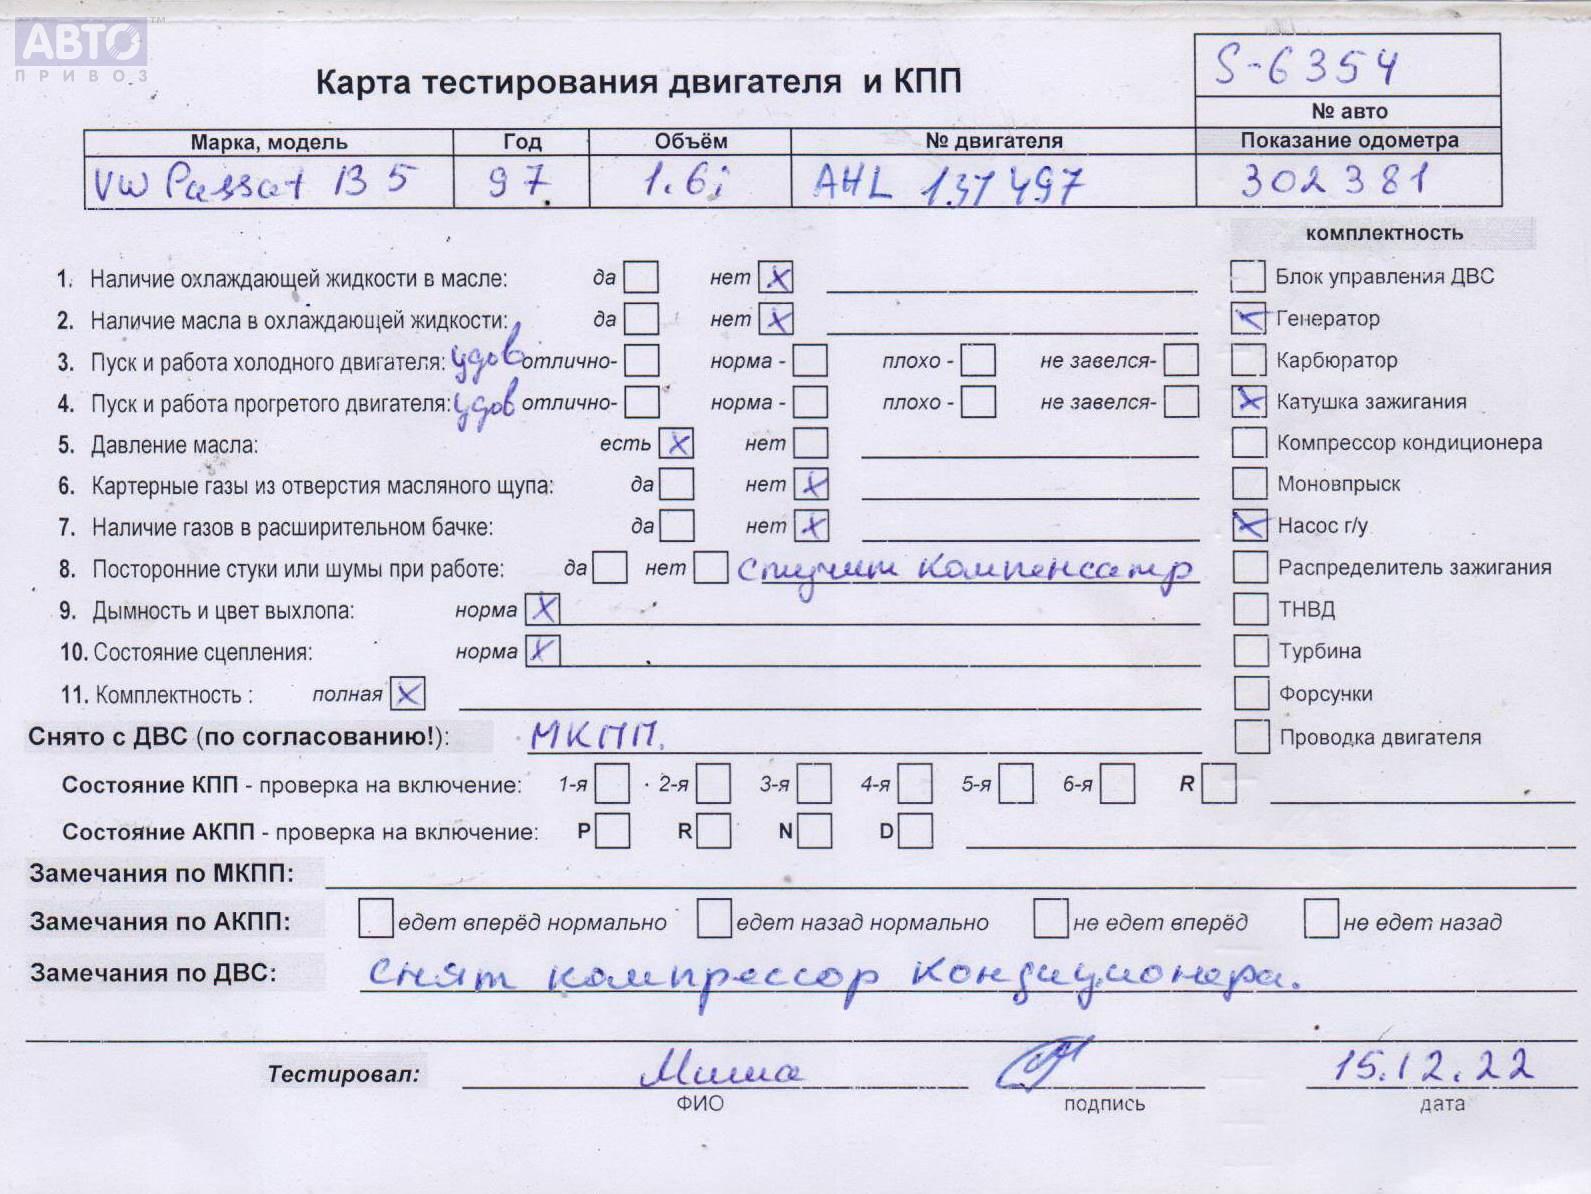 АВТО™
ПРИВОЗ
S-6354
Карта тестирования двигателя и КПП
№ авто
Марка, модель Год Объём № двигателя Показание одометра
VW Passat B5 97 1.6i AHL 137497 302381
комплектность
1. Наличие охлаждающей жидкости в масле: да нет X Блок управления ДВС
2. Наличие масла в охлаждающей жидкости: да нет X X Генератор
3. Пуск и работа холодного двигателя: удов отлично- норма - плохо - не завелся- Карбюратор
4. Пуск и работа прогретого двигателя: удов отлично- норма - плохо - не завелся- X Катушка зажигания
5. Давление масла: есть X нет Компрессор кондиционера
6. Картерные газы из отверстия масляного щупа: да нет X Моновпрыск
7. Наличие газов в расширительном бачке: да нет X X Насос г/у
8. Посторонние стуки или шумы при работе: да нет Стучит компенсатр Распределитель зажигания
9. Дымность и цвет выхлопа: норма X ТНВД
10. Состояние сцепления: норма X Турбина
11. Комплектность : полная X Форсунки
Снято с ДВС (по согласованию!): МКПП. Проводка двигателя
Состояние КПП - проверка на включение: 1-я 2-я 3-я 4-я 5-я 6-я R
Состояние АКПП - проверка на включение: P R N D
Замечания по МКПП:
Замечания по АКПП: едет вперёд нормально едет назад нормально не едет вперёд не едет назад
Замечания по ДВС: снят компрессор кондиционера.
Тестировал: Миша 15.12.22
ФИО подпись дата